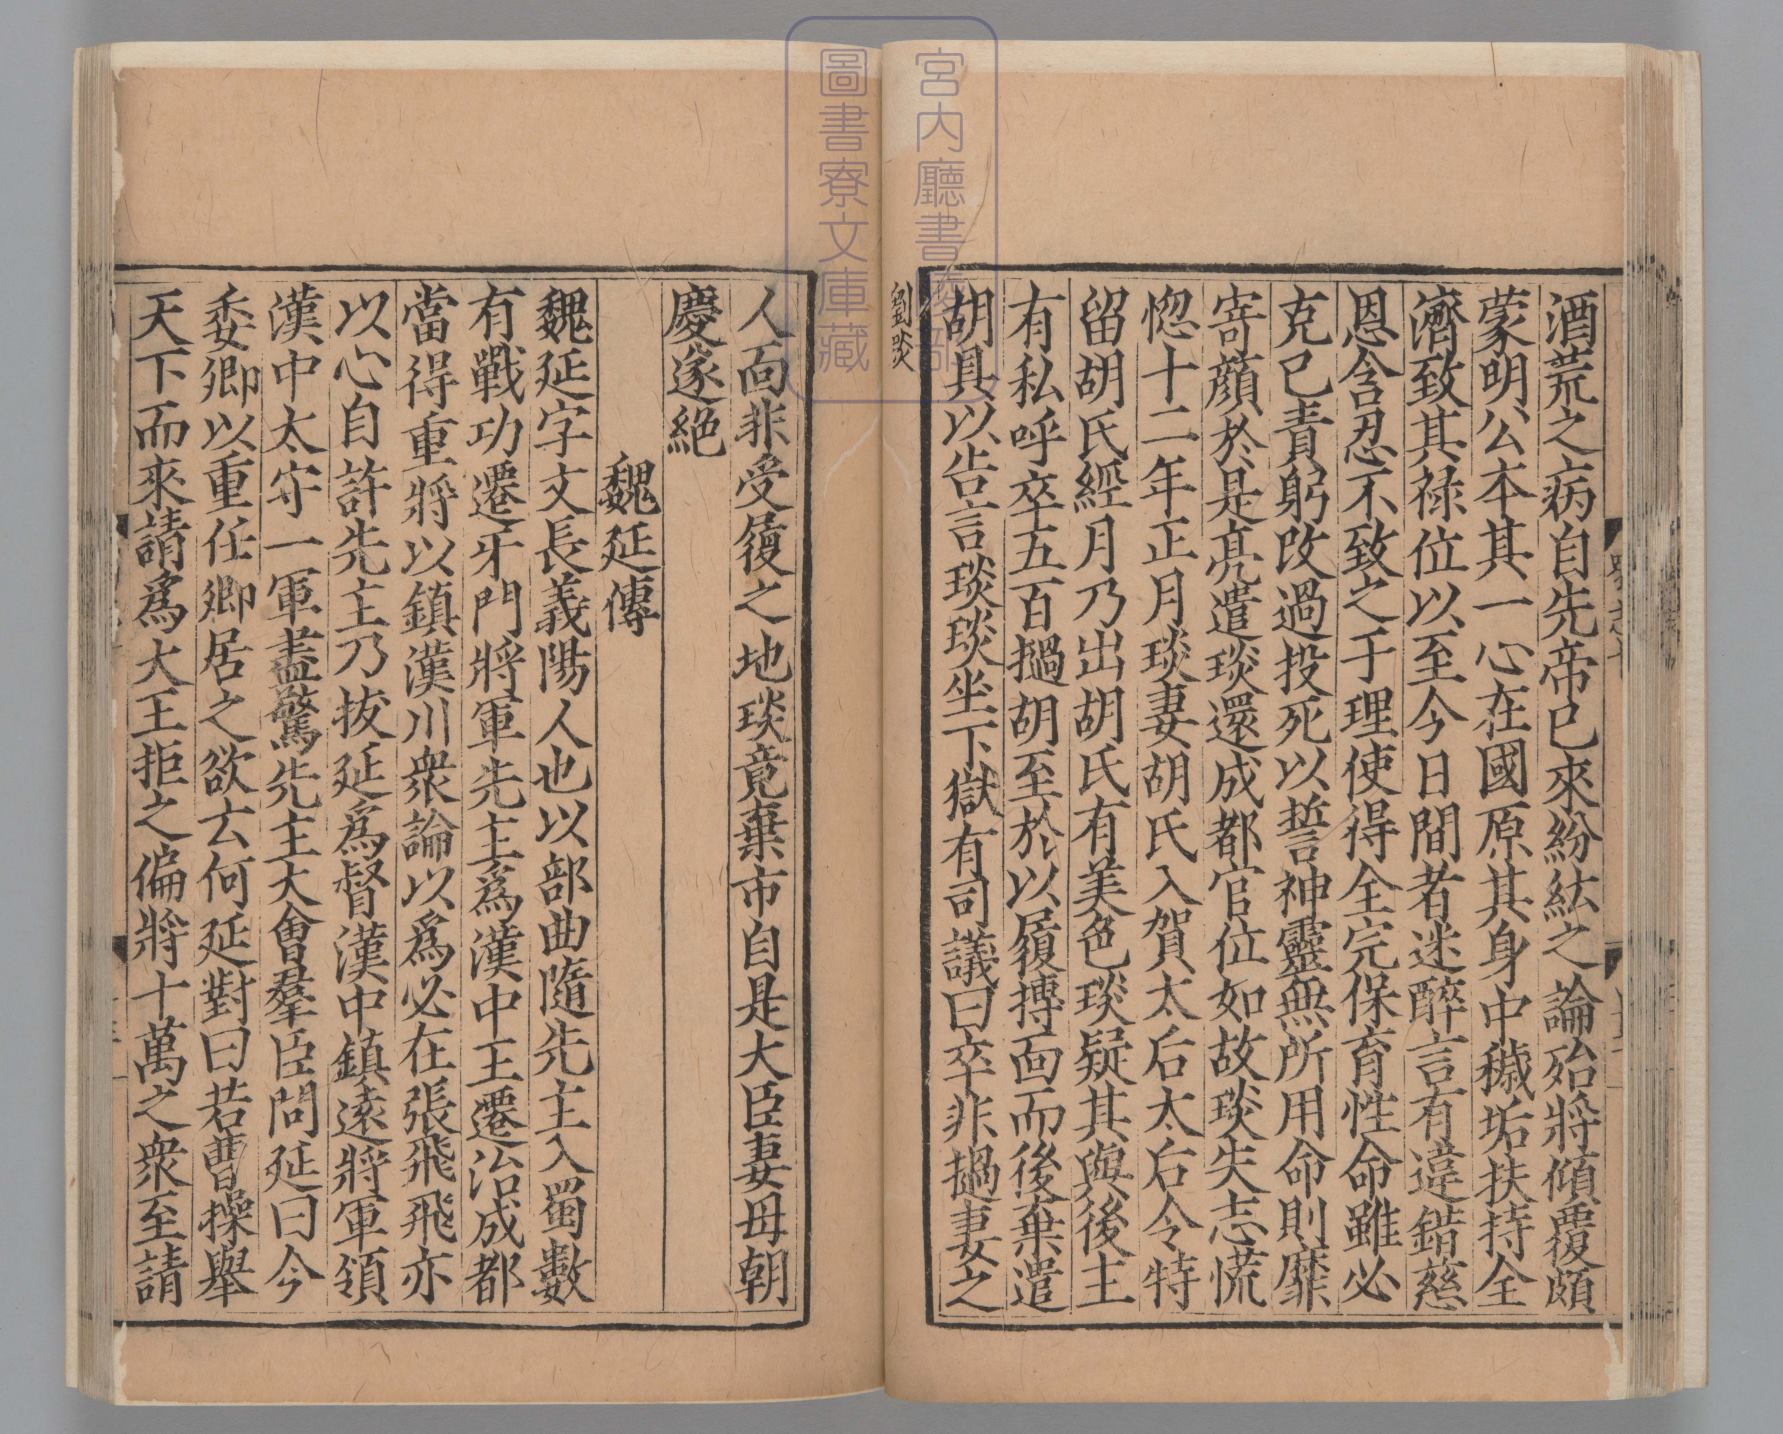 酒荒之病自先帝已來紛紜之論殆將傾覆頗
蒙明公本其一心在國原其身中穢垢扶持全
濟致其禄位以至今日間者迷醉言有違錯慈
恩含忍不致之于理使得全完保育性命雖必
克已責躬改過投死以誓神靈無所用命則靡
寄顔於是亮遣琰還成都官位如故琰失志慌
惚十二年正月琰妻胡氏入賀太后太后令特
留胡氏經月乃出胡氏有美色琰疑其與後主
有私呼卒五百撾胡至於以履摶面而後棄遣
胡具以告言琰琰坐下獄有司議曰卒非撾妻之
劉琰
人面非受履之地琰竟棄市自是大臣妻母朝
慶遂絶
魏延傳
魏延字文長義陽人也以部曲隨先主入蜀數
有戰功遷牙門將軍先主爲漢中王遷治成都
當得重將以鎮漢川衆論以爲必在張飛飛亦
以心自許先主乃拔延爲督漢中鎮遠將軍領
漢中太守一軍盡驚先主大會羣臣問延曰今
委卿以重任卿居之欲云何延對曰若曹操舉
天下而來請爲大王拒之偏將十萬之衆至請
宮内廳書陵部
圖書寮文庫藏